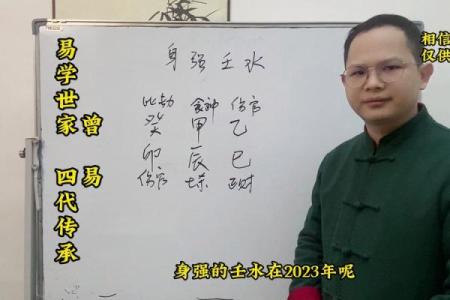 易学世家
曾易
四代传承
相信
仅供
身强壬水
比劫 食神 伤官
癸 甲 乙
卯 辰 巳
伤官 七杀 正财
身强的壬水在2023年呢